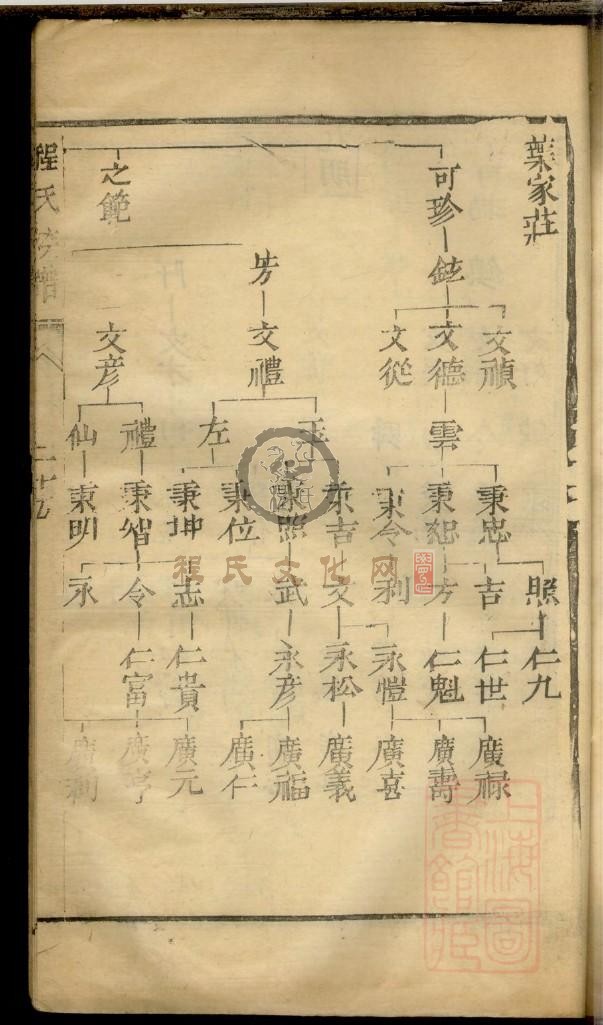 葉家莊
可珍 之範
鉉 
文禎 文德 文從 文禮 文彦
雲 玉 左 禮 仙
秉忠 秉恕 秉令 秉吉 秉照 秉位 秉坤 秉智 秉明
照 吉 方 利 文 武 志 令 永
仁九 仁世 仁魁 永愷 永松 永彦 仁貴 仁富
廣禄 廣壽 廣喜 廣義 廣福 廣仁 廣元 廣亨 廣利
程氏
二十五
程氏文化网
上海圖書館藏